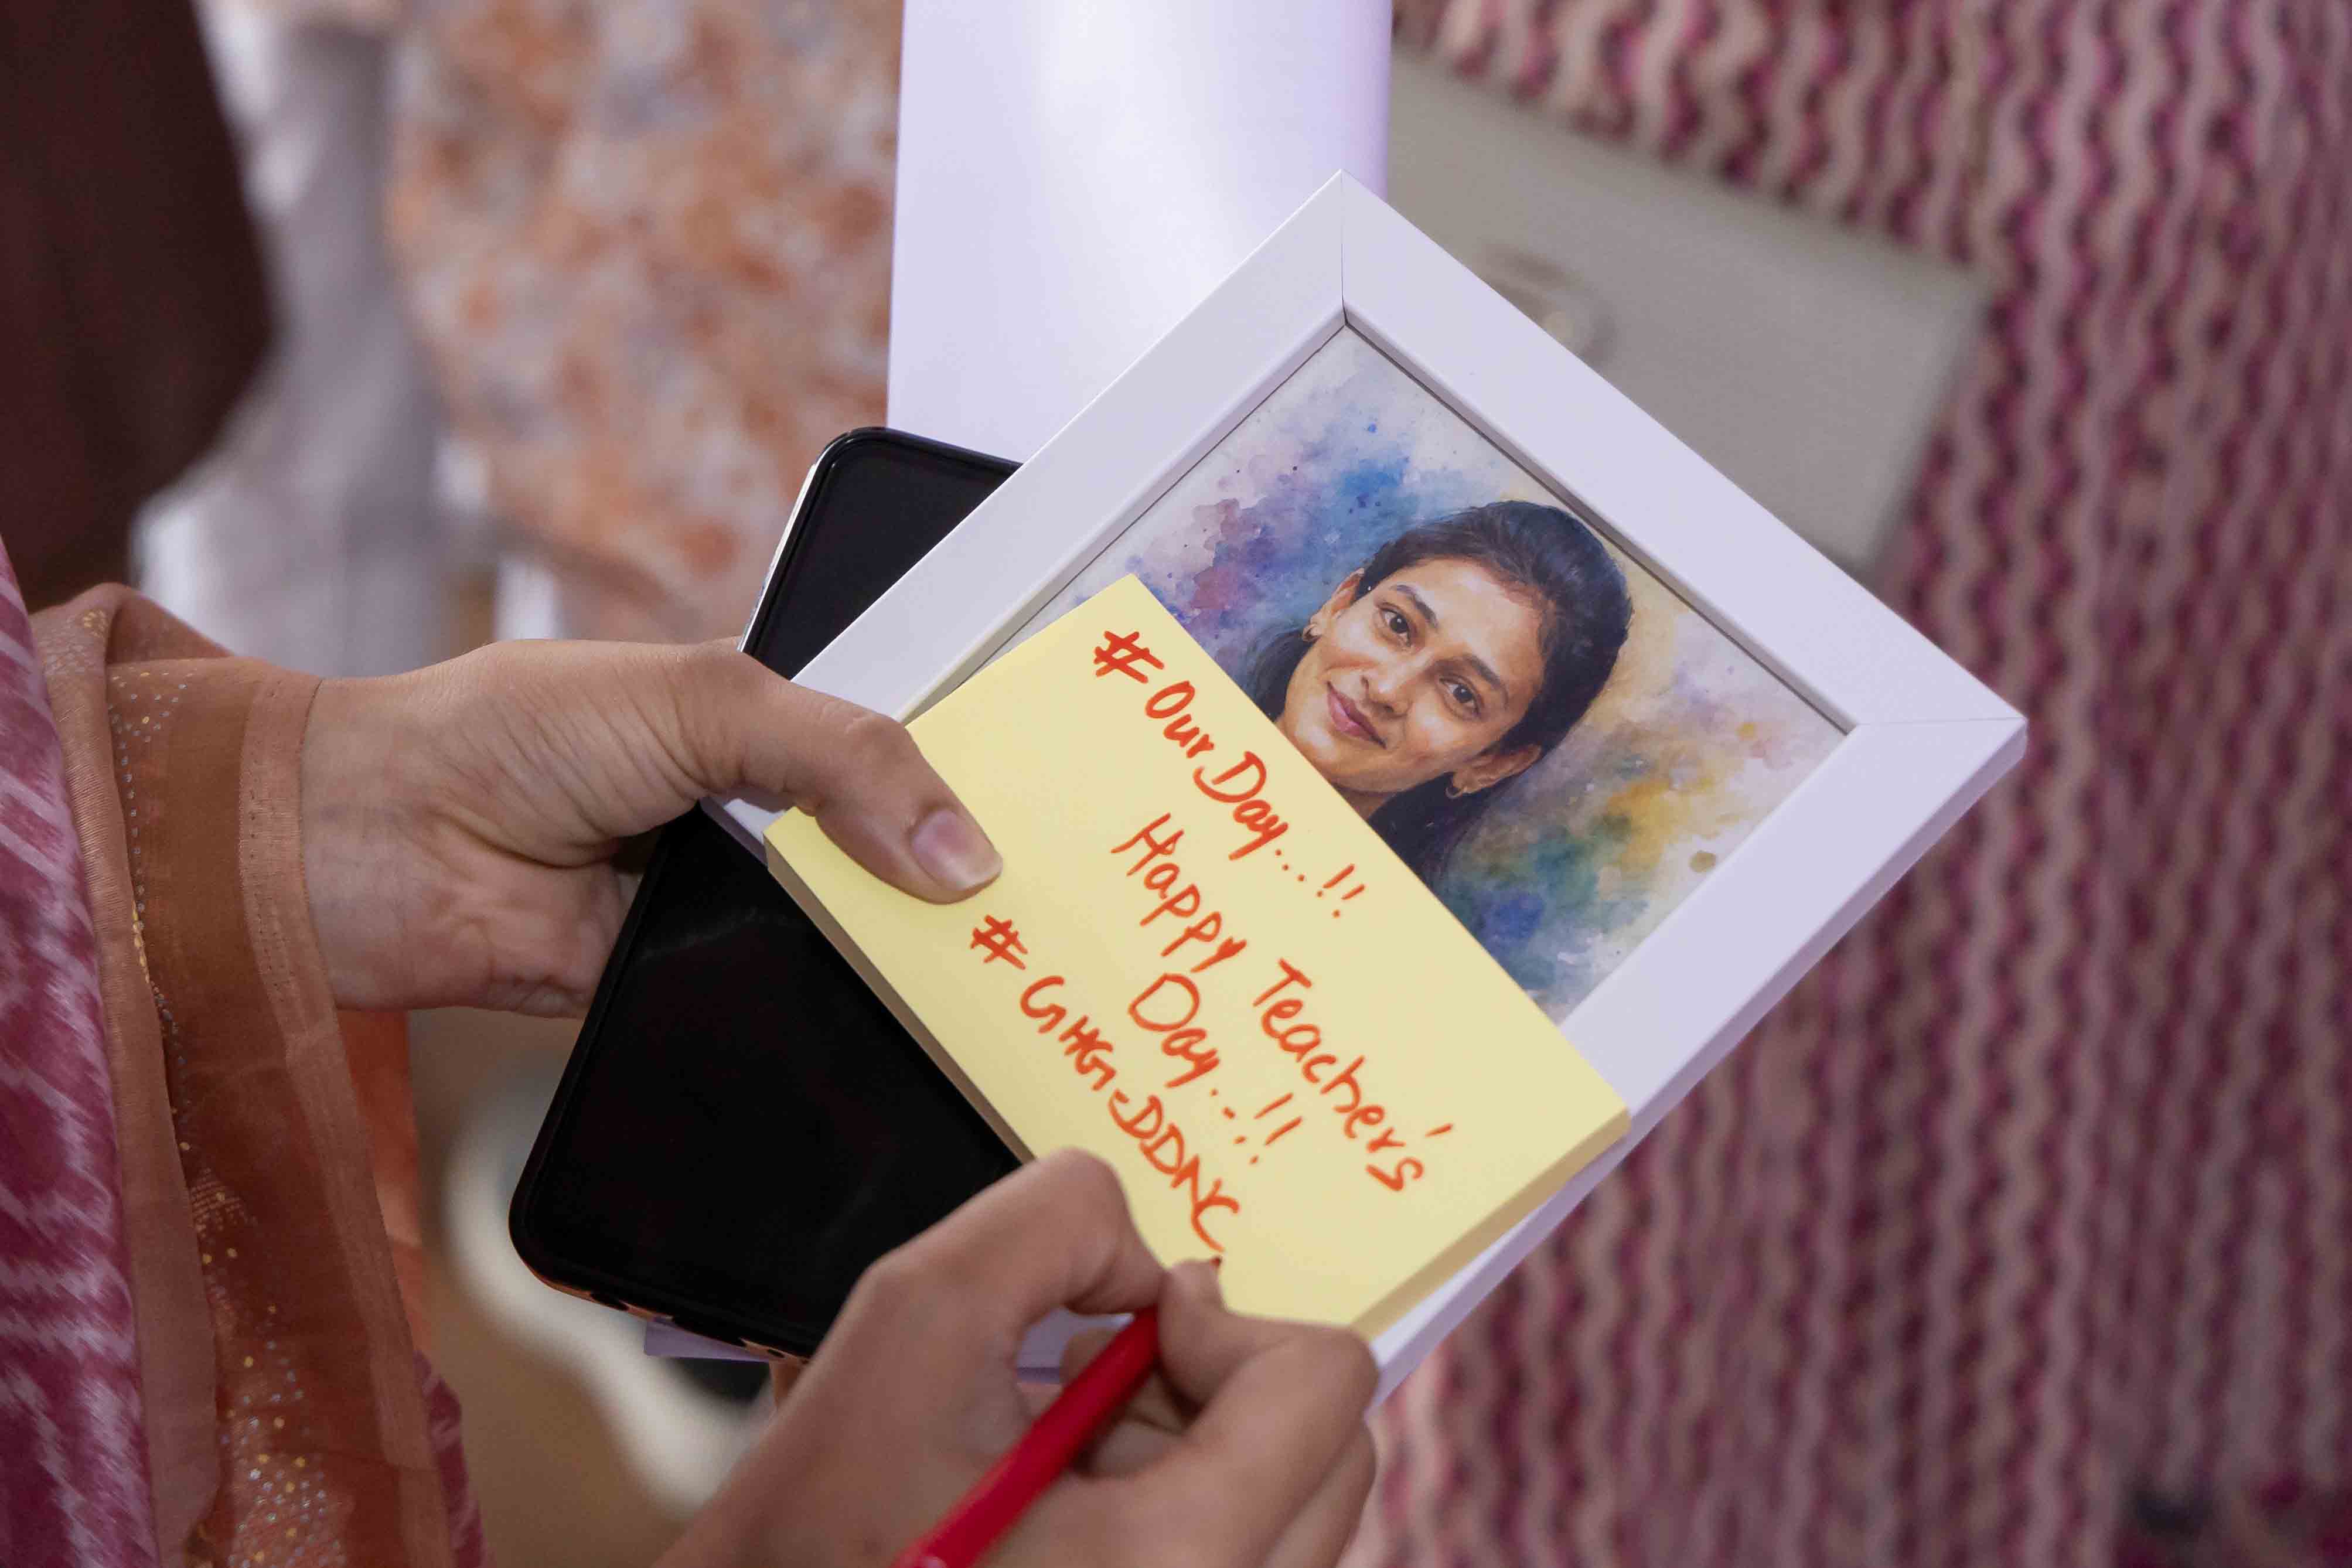 #Our Day...!!
Happy Teacher's
Day..-!!
#GHG-DDNC